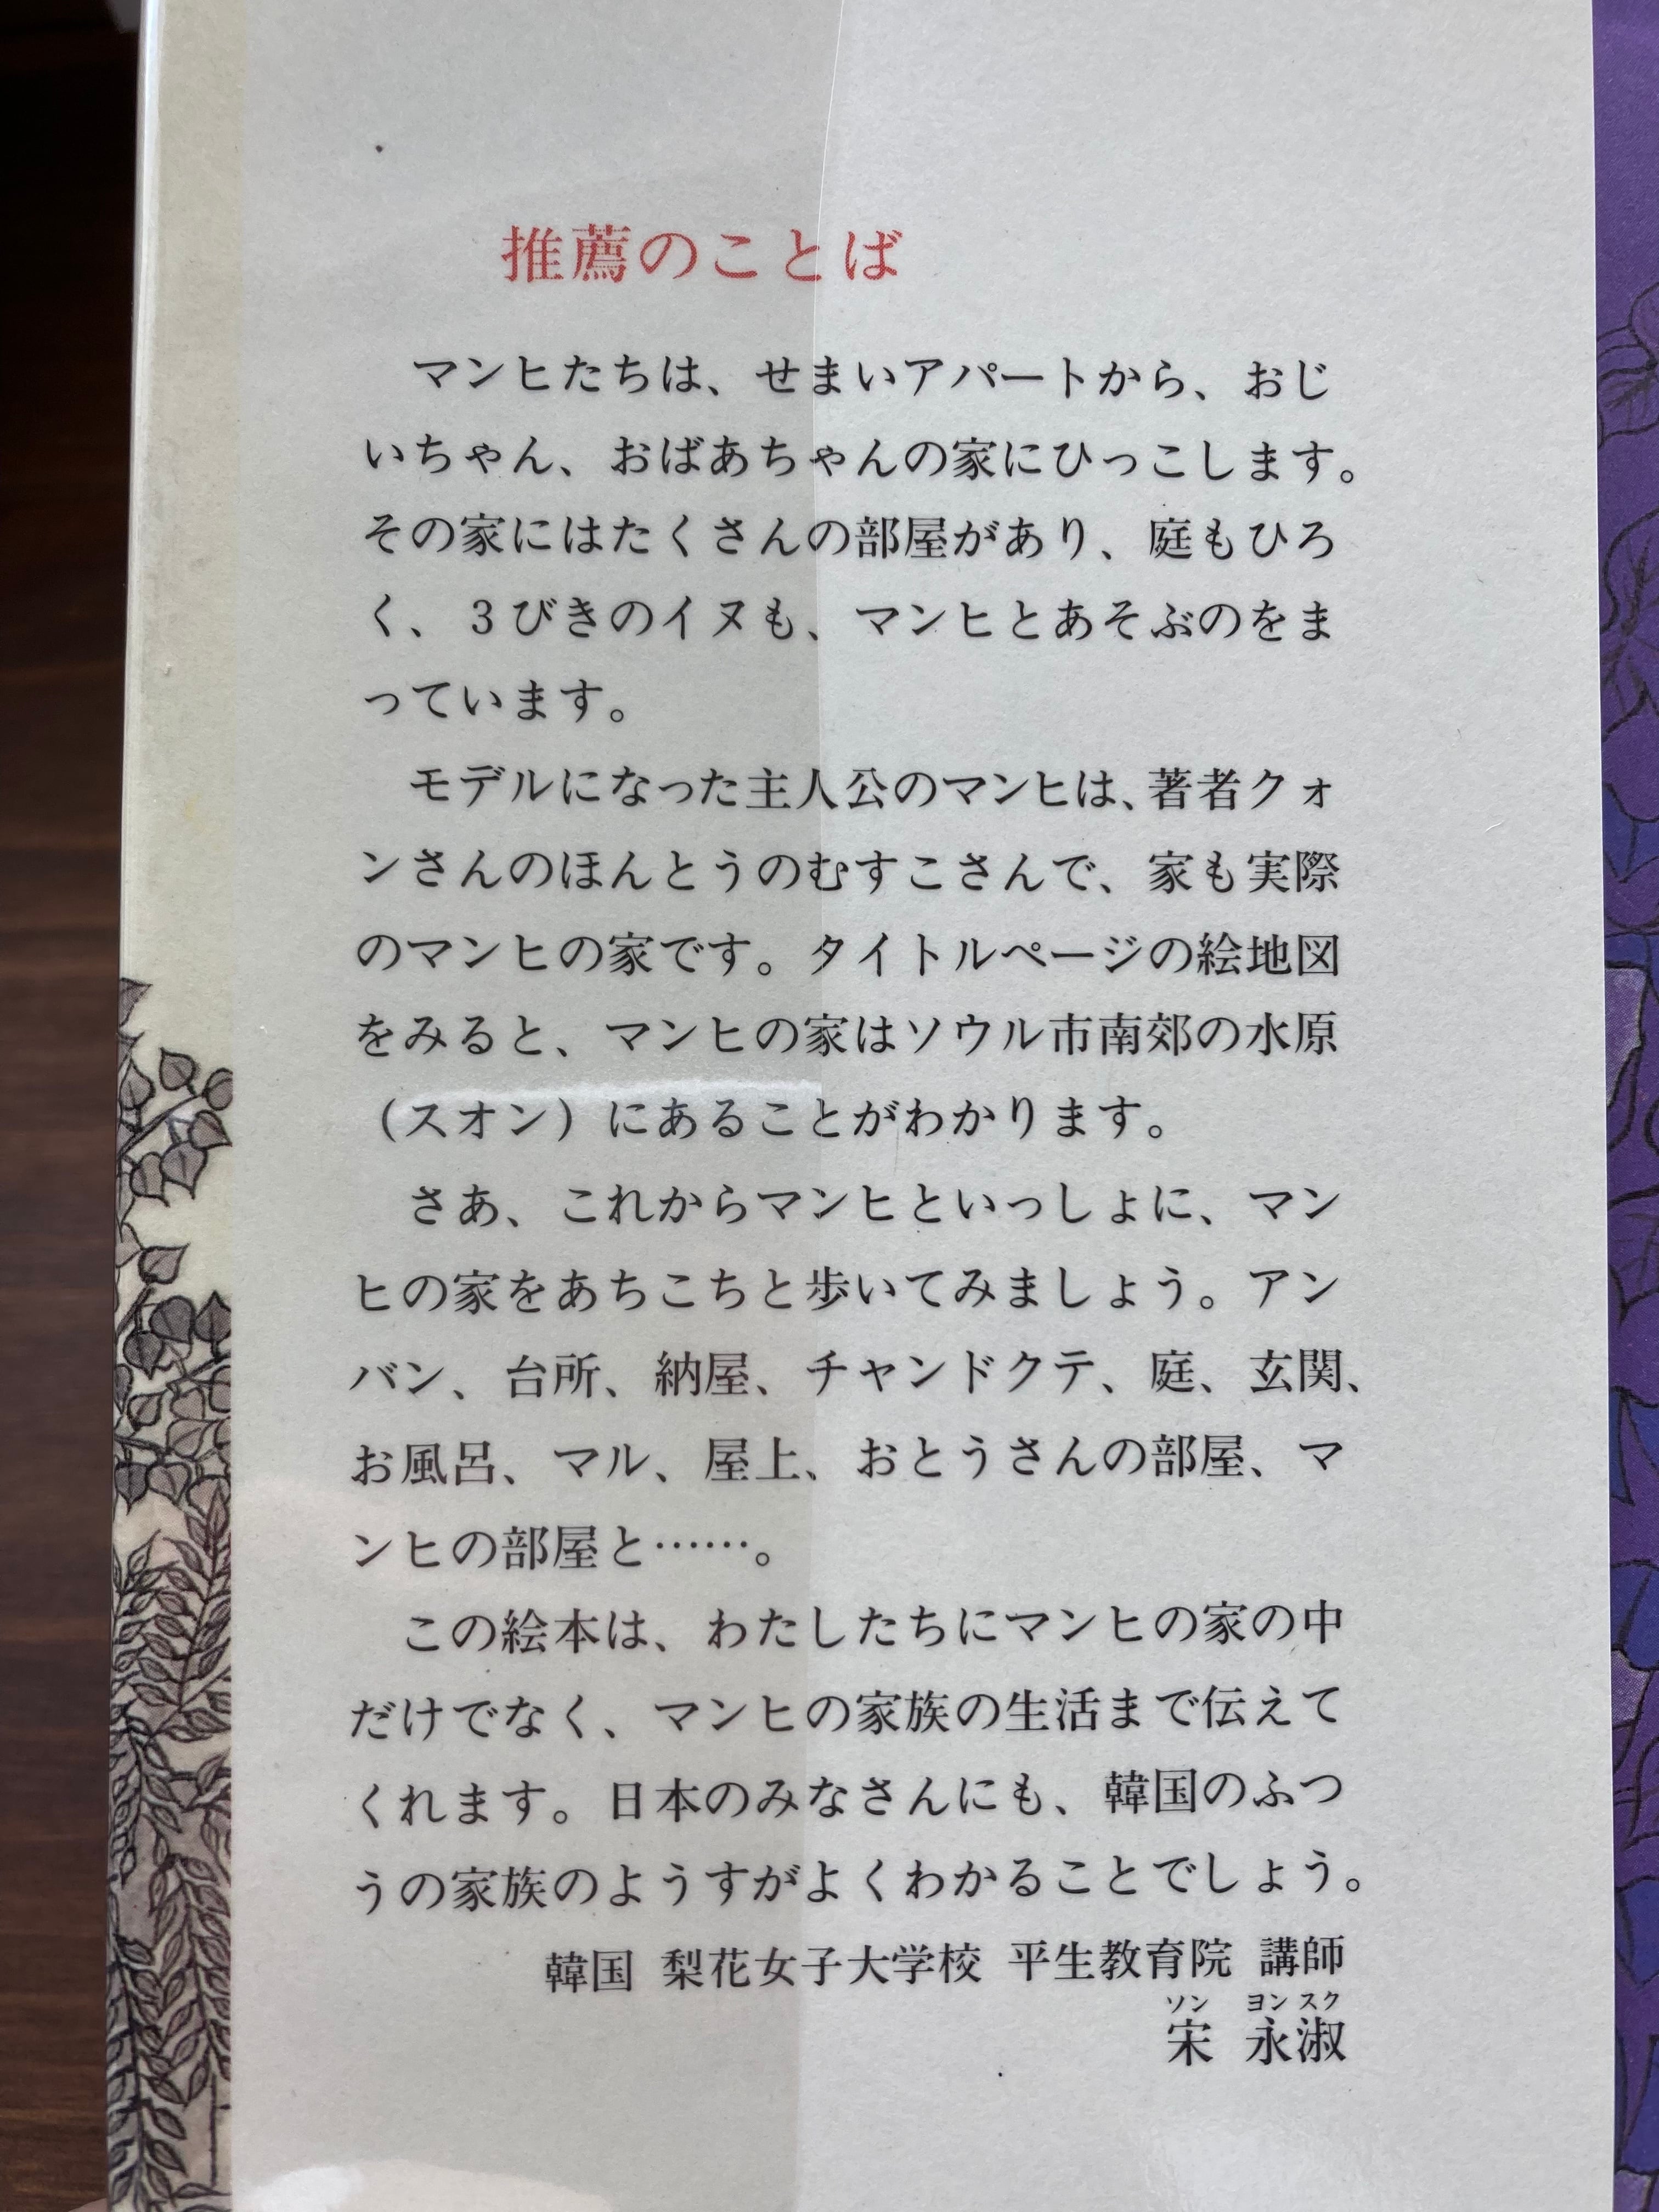 推薦のことば
マンヒたちは、せまいアパートから、おじ
いちゃん、おばあちゃんの家にひっこします。
その家にはたくさんの部屋があり、庭もひろ
く、3びきのイヌも、マンヒとあそぶのをま
っています。
モデルになった主人公のマンヒは、著者クォ
ンさんのほんとうのむすこさんで、家も実際
のマンヒの家です。タイトルページの絵地図
をみると、マンヒの家はソウル市南郊の水原
（スオン）にあることがわかります。
さあ、これからマンヒといっしょに、マン
ヒの家をあちこちと歩いてみましょう。アン
バン、台所、納屋、チャンドクテ、庭、玄関、
お風呂、マル、屋上、おとうさんの部屋、マ
ンヒの部屋と……。
この絵本は、わたしたちにマンヒの家の中
だけでなく、マンヒの家族の生活まで伝えて
くれます。日本のみなさんにも、韓国のふつ
うの家族のようすがよくわかることでしょう。
韓国 梨花女子大学校 平生教育院 講師
ソン ヨンスク
宋 永淑